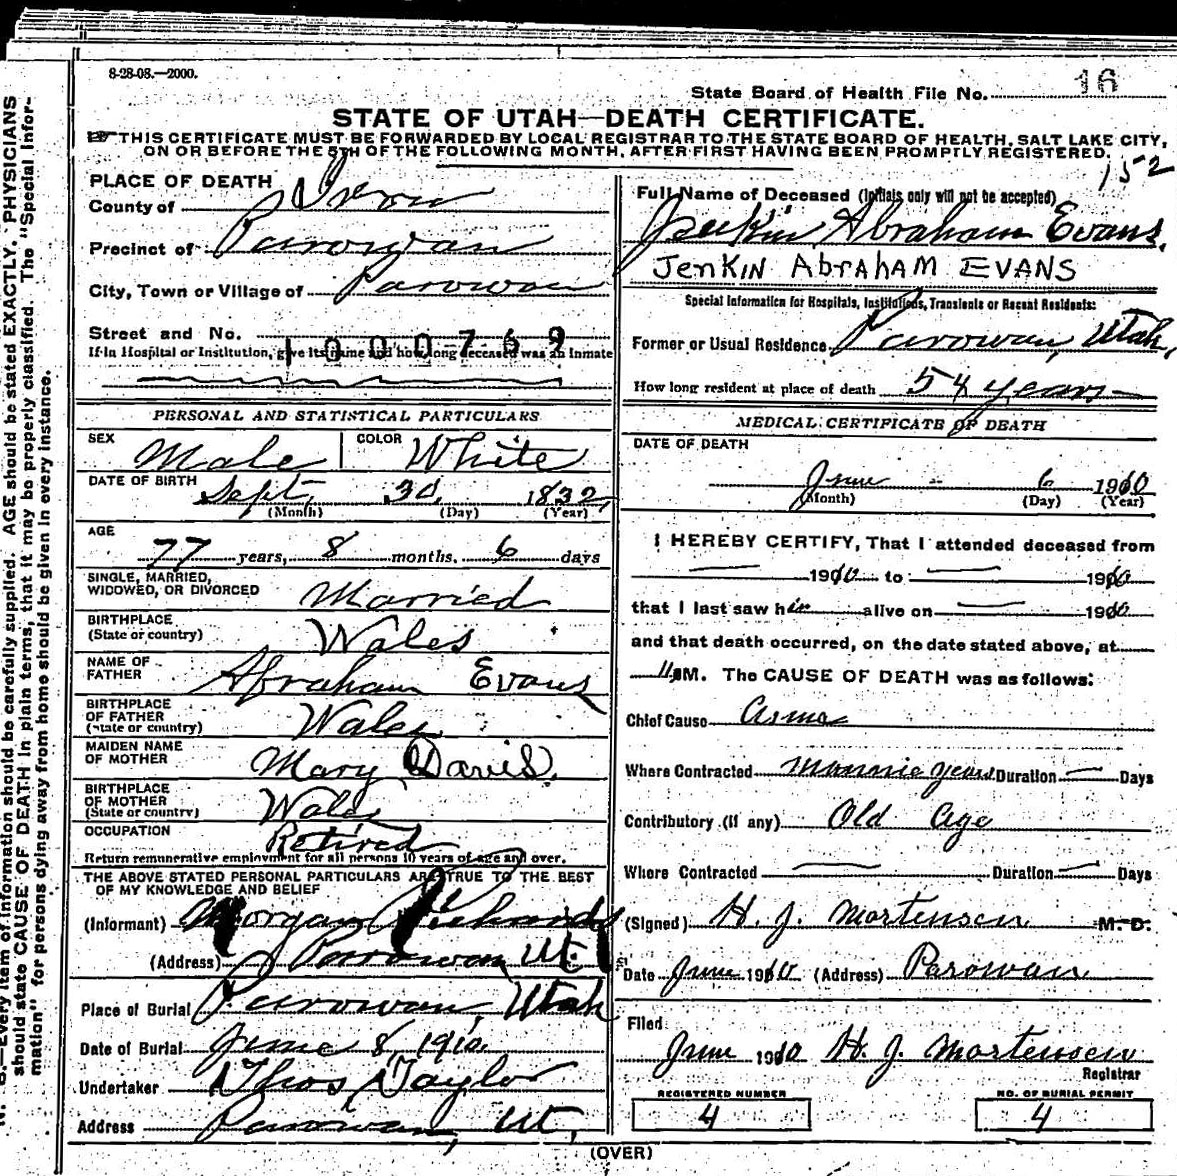 8-28-08.—2000.
State Board of Health File No. 16
STATE OF UTAH—DEATH CERTIFICATE.
THIS CERTIFICATE MUST BE FORWARDED BY LOCAL REGISTRAR TO THE STATE BOARD OF HEALTH, SALT LAKE CITY,
ON OR BEFORE THE 5TH OF THE FOLLOWING MONTH, AFTER FIRST HAVING BEEN PROMPTLY REGISTERED.
152
PLACE OF DEATH
County of Iron
Precinct of Parowan
City, Town or Village of Parowan
Street and No.
1000769
If in Hospital or Institution, give its name and how long deceased was an inmate
PERSONAL AND STATISTICAL PARTICULARS
SEX Male COLOR White
DATE OF BIRTH Sept. 30, 1832
(Month) (Day) (Year)
AGE
77 years, 8 months, 6 days
SINGLE, MARRIED,
WIDOWED, OR DIVORCED Married
BIRTHPLACE
(State or country) Wales
NAME OF
FATHER Abraham Evans
BIRTHPLACE
OF FATHER
(State or country) Wales
MAIDEN NAME
OF MOTHER Mary Davis.
BIRTHPLACE
OF MOTHER
(State or country) Wales
OCCUPATION Retired
Return remunerative employment for all persons 10 years of age and over.
THE ABOVE STATED PERSONAL PARTICULARS ARE TRUE TO THE BEST
OF MY KNOWLEDGE AND BELIEF
(Informant) Morgan Richards
(Address) Parowan, Ut.
Place of Burial Parowan, Utah
Date of Burial June 8, 1910.
Undertaker Thos Taylor
Address Parowan, Ut.
Full Name of Deceased (Initials only will not be accepted)
Jenkin Abraham Evans.
JENKIN ABRAHAM EVANS
Special Information for Hospitals, Institutions, Transients or Recent Residents:
Former or Usual Residence Parowan, Utah,
How long resident at place of death 54 years
MEDICAL CERTIFICATE OF DEATH
DATE OF DEATH
June 6 1910
(Month) (Day) (Year)
I HEREBY CERTIFY, That I attended deceased from
1910 to 1910
that I last saw him alive on 1910
and that death occurred, on the date stated above, at
11 M. The CAUSE OF DEATH was as follows:
Chief Cause Asma
Where Contracted Monnie years Duration Days
Contributory (if any) Old Age
Where Contracted Duration Days
(Signed) H. J. Mortensen M. D.
Date June 1910 (Address) Parowan
Filed
June 1910 H. J. Mortensen
Registrar
REGISTERED NUMBER
4
NO. OF BURIAL PERMIT
4
(OVER)
N. B.—Every item of information should be carefully supplied. AGE should be stated EXACTLY. PHYSICIANS
should state CAUSE OF DEATH in plain terms, that it may be properly classified. The "Special Infor-
mation" for persons dying away from home should be given in every instance.